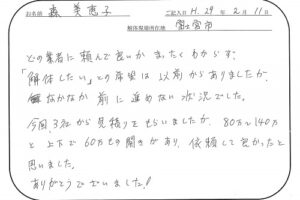 お名前 森 美恵子 ご記入日 H.29年2月11日
解体現場所在地 富士宮市
どの業者に頼んで良いか まったくわからず、
「解体したい」との希望は以前からありましたが、
なかなか前に進めない状況でした。
今回、3社から見積りをもらいましたが、80万〜140万
と上下で60万もの開きがあり、依頼して良かったと
思いました。
ありがとうございました!